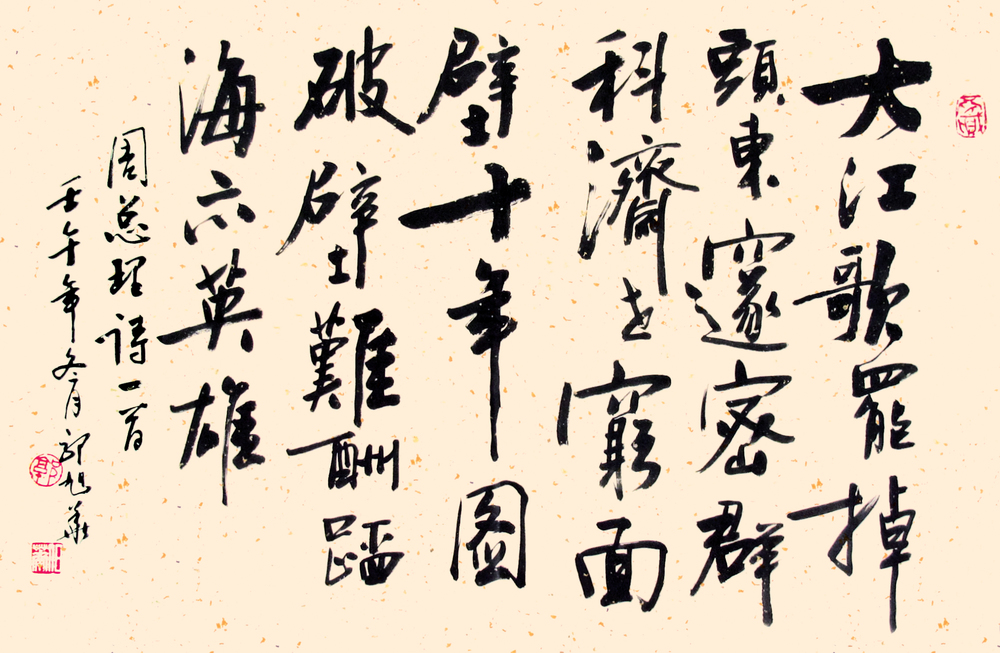 大江歌罷掉
頭東邃密群
科濟世窮面
壁十年圖
破壁難酬蹈
海亦英雄
周总理詩一首
壬午年冬月郭旭